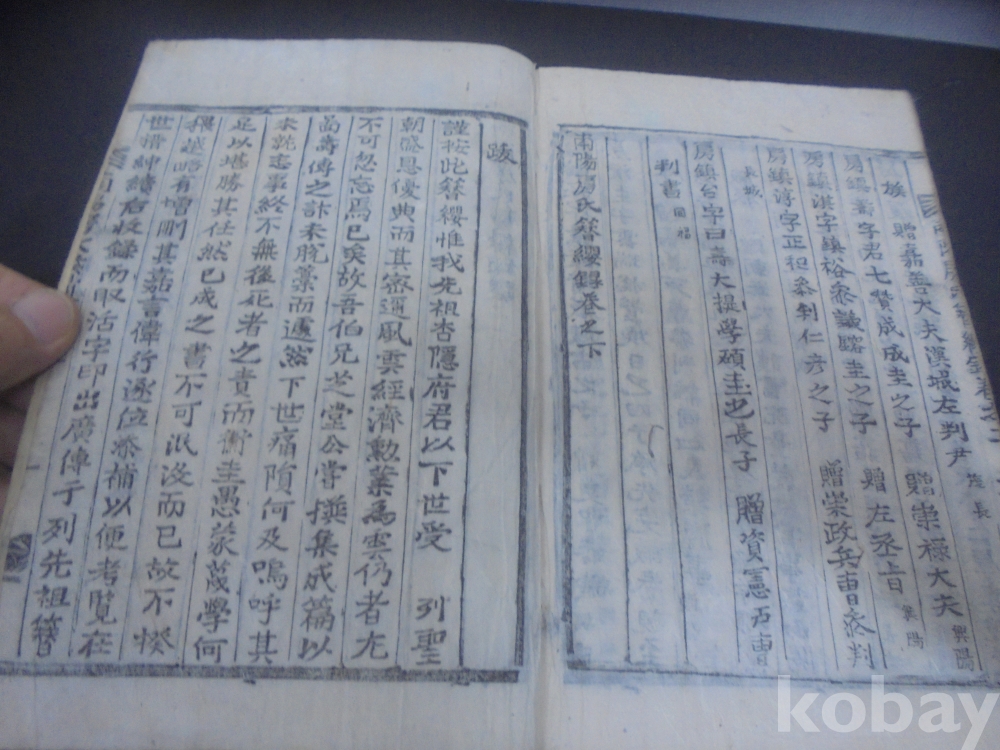 族
贈嘉善大夫漢城左判尹
房鎭 字君七贊成成圭之子 贈崇祿大夫
房鎭 字 圭之子 贈左丞旨
房鎭淇字鎭裕叅議 圭之子 贈崇政兵曺叅判
房鎭淳字正 叅判仁彦之子
長城
房鎭台字曰壽大提學碩圭之長子 贈資憲 曺
判書
南陽房氏簪纓錄卷之下
跋
謹按此簪纓惟我先祖杏隱府君以下世受 列聖
朝盛恩優典而其密邇風雲經濟勳業爲雲仍者尤
不可忽忘焉已矣故吾伯兄芝堂公嘗撰集成篇以
啚壽傳之計未脫藁而遽然下世痛隕何及嗚呼其
未就志事終不無後死者之責而衡圭愚蒙蔑學何
足以堪勝其任然已成之書不可泯沒而已故不揆
猥越略有增刪其嘉言偉行逐位叅補以便考覽在
世搢紳續后收錄而取活字印出廣傳于列先祖簪
kobay